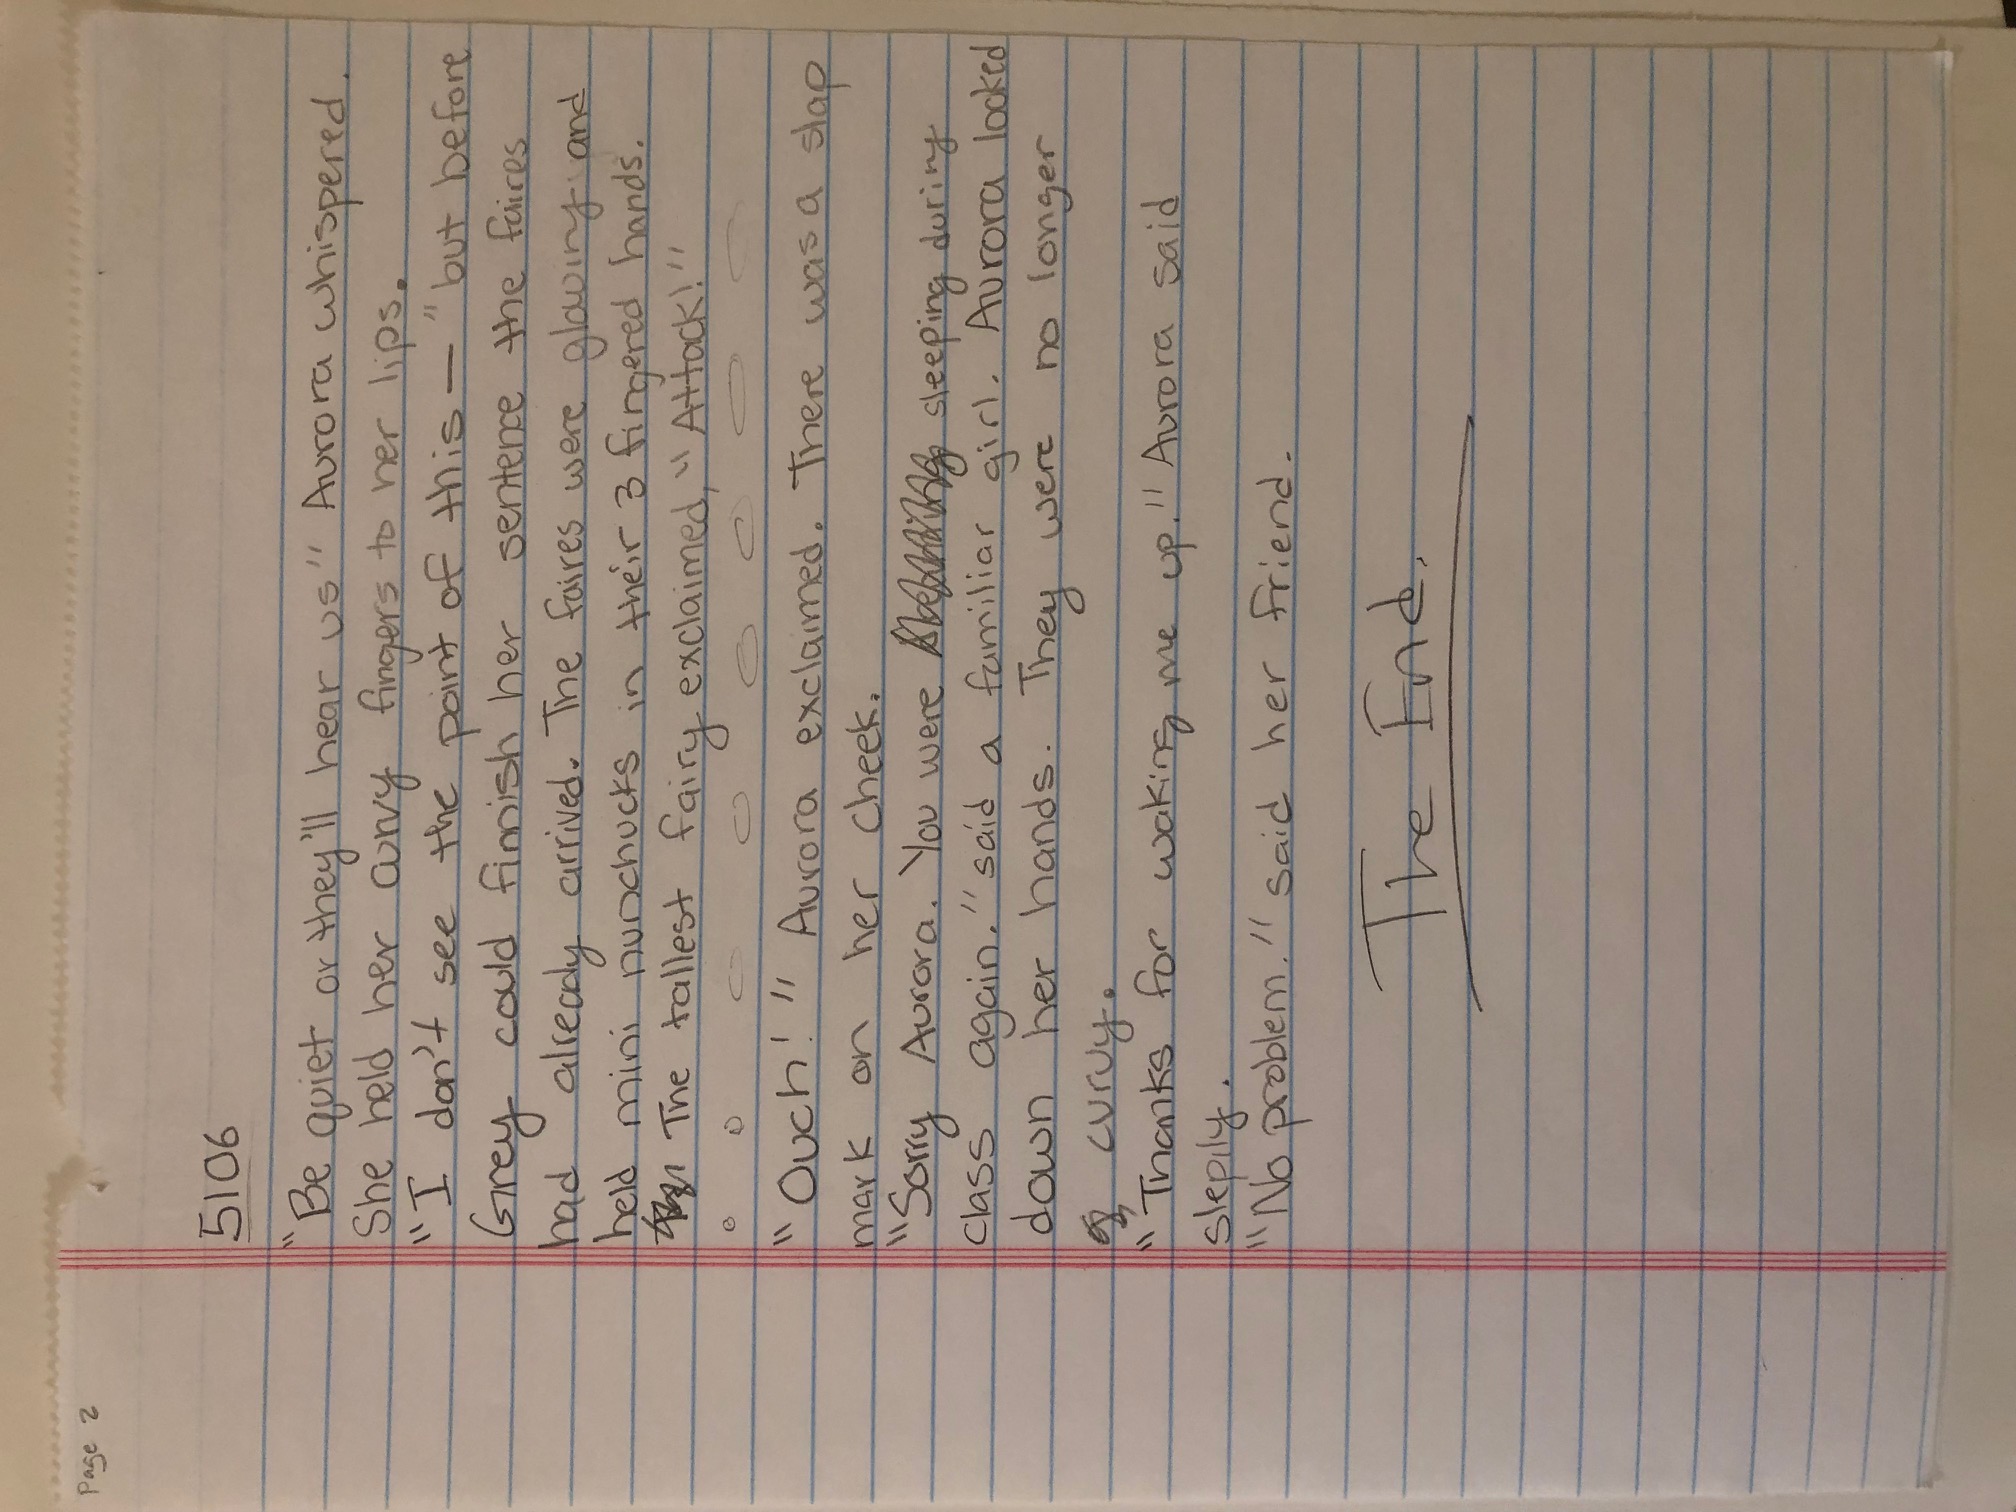 Page 2
5106
"Be quiet or they'll hear us" Aurora whispered.
She held her curvy fingers to her lips.
"I don't see the point of this — "but before
Grey could finnish her sentence the faires
had already arrived. The faires were glowing and
held mini nunchucks in their 3 fingered hands.
The tallest fairy exclaimed, "Attack!"
"Ouch!" Aurora exclaimed. There was a slap
mark on her cheek.
"Sorry Aurora. You were sleeping during
class again." said a familiar girl. Aurora looked
down her hands. They were no longer
curvy.
"Thanks for waking me up." Aurora said
slepily.
"No problem." said her friend.
The End.